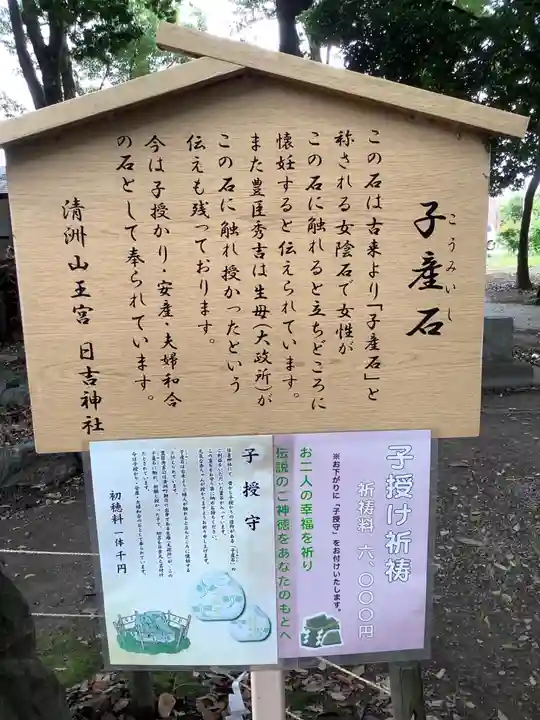 子産石
こうみいし
この石は古来より「子産石」と
称される女陰石で女性が
この石に触れると立ちどころに
懐妊すると伝えられています。
また豊臣秀吉は生母(大政所)が
この石に触れ授かったという
伝えも残っております。
今は子授かり・安産・夫婦和合
の石として奉られています。
清洲山王宮 日吉神社
子授け祈祷
祈祷料 六、〇〇〇円
※お下がりに「子授守」をお付けいたします。
お二人の幸福を祈り
伝説のご神徳をあなたのもとへ
子授守
初穂料 一体千円